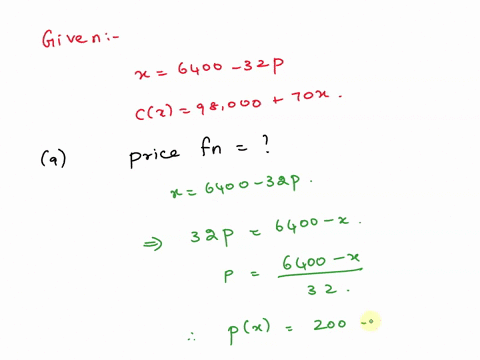 Given:-
x = 6400 - 32p
C(x) = 98,000 + 70x.
(a) price fn = ?
x = 6400 - 32p.
⇒ 32p = 6400 - x.
p = 6400 - x / 32.
∴ p(x) = 200 -